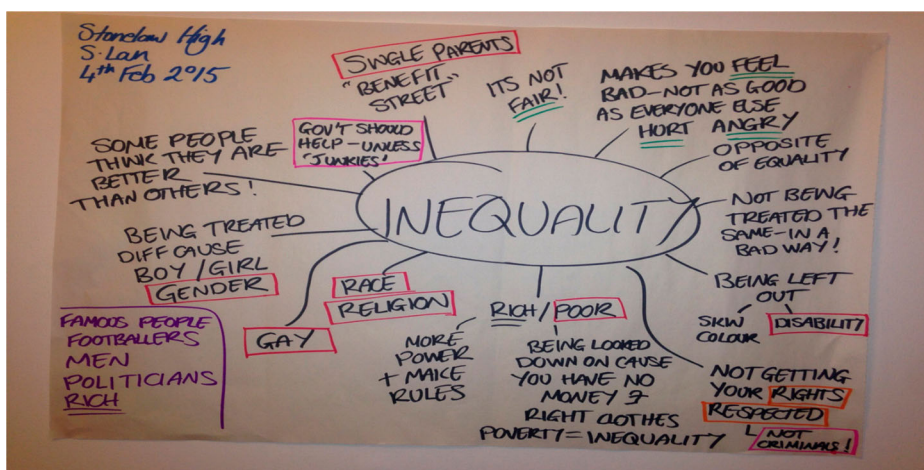 Stonelaw High
S. Lan
4th Feb 2015
SINGLE PARENTS
"BENEFIT
STREET"
ITS NOT
FAIR!
MAKES YOU FEEL
BAD-NOT AS GOOD
AS EVERYONE ELSE
HURT ANGRY
OPPOSITE
OF EQUALITY
NOT BEING
TREATED THE
SAME-IN A
BAD WAY!
BEING LEFT
OUT
SKIN
COLOUR
DISABILITY
NOT GETTING
YOUR RIGHTS
RESPECTED
NOT
CRIMINALS!
RICH / POOR
MORE
POWER
+ MAKE
RULES
BEING LOOKED
DOWN ON CAUSE
YOU HAVE NO
MONEY &
RIGHT CLOTHES
POVERTY = INEQUALITY
RACE
RELIGION
GAY
BEING TREATED
DIFF CAUSE
BOY / GIRL
GENDER
SOME PEOPLE
THINK THEY ARE
BETTER
THAN OTHERS!
GOV'T SHOULD
HELP-UNLESS
'JUNKIES'
INEQUALITY
FAMOUS PEOPLE
FOOTBALLERS
MEN
POLITICIANS
RICH